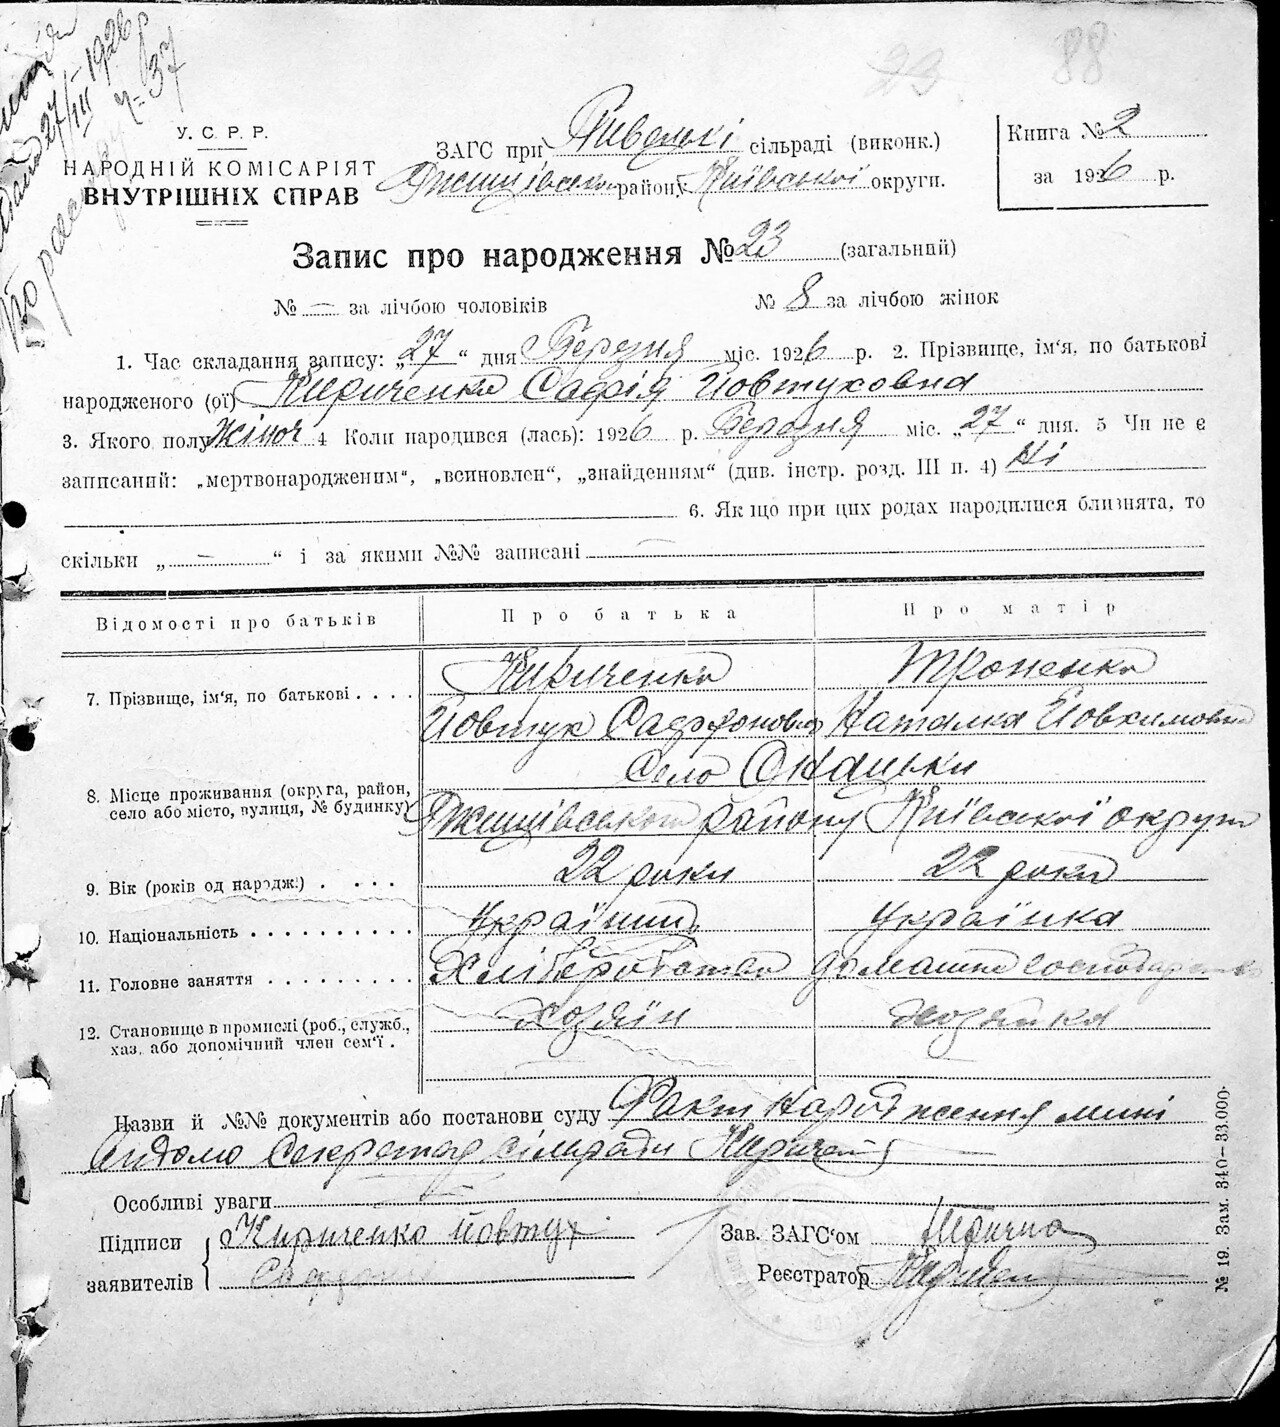 23 88
27/III 1926 р
ч= 37
У. С. Р. Р.
НАРОДНІЙ КОМІСАРІЯТ
ВНУТРІШНІХ СПРАВ
ЗАГС при сільраді (виконк.)
Ржищівськ району Київської округи.
Книга № 2
за 1926 р.
Запис про народження № 23 (загальний)
№ — за лічбою чоловіків № 8 за лічбою жінок
1. Час складання запису: „27" дня Березня міс. 1926 р. 2. Прізвище, ім'я, по батькові
народженого (ої) Кириченко Софія Йовтуховна
3. Якого полу Жіноч 4 Коли народився (лась): 1926 р. Березня міс. „27" дня. 5 Чи не є
записаний: „мертвонародженим", „всиновлен", „знайденням" (див. інстр. розд. III п. 4) Ні
6. Якщо при цих родах народилися близнята, то
скільки „ — " і за якими №№ записані —
Відомості про батьків Про батька Про матір
7. Прізвище, ім'я, по батькові . . . . Кириченко Троненко
Йовтух Сафронович Наталка Йовхимовна
Село Онацьки
8. Місце проживання (округа, район, село або місто, вулиця, № будинку) Ржищівського району Київської округи
9. Вік (років од народж.) . . . . 22 роки 22 роки
10. Національність . . . . . . . . . . Українець Українка
11. Головне заняття . . . . . . . . . Хліборобство домашнє господарство
12. Становище в промислі (роб., служб., хаз. або допомічний член сем'ї . Хозяїн Хозяйка
Назви й №№ документів або постанови суду Факт народження мині
відомо Секретар сільради
Особливі уваги
Підписи Кириченко Йовтух Зав. ЗАГС'ом
заявителів Реєстратор
№ 19. Зам. 340—33.000.